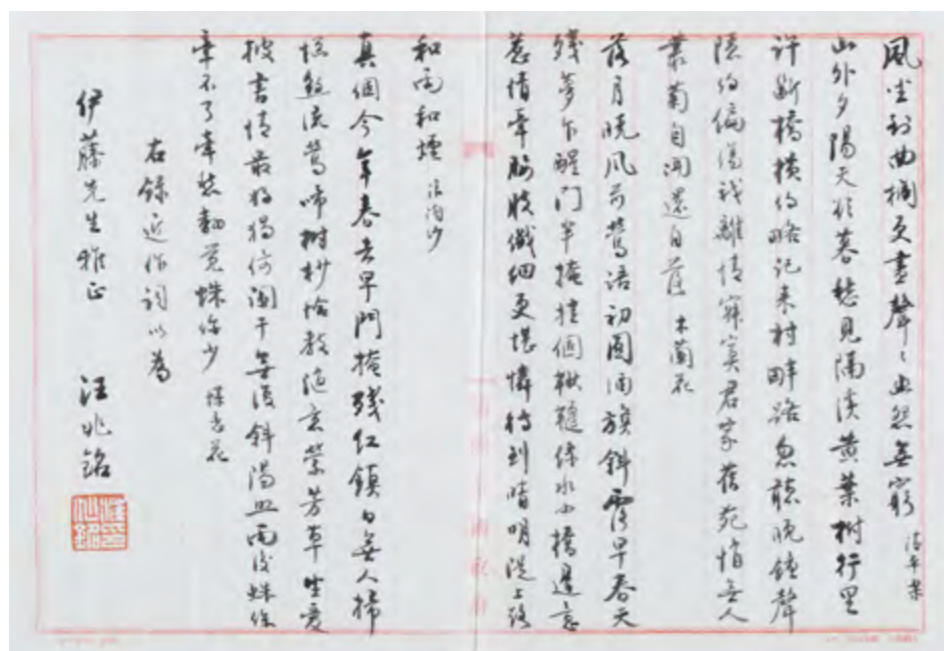 曲欄更盡聲〻幽怨無窮 清平樂
山外夕陽天欲暮愁見隔溪黃葉樹行里
許斷橋橫約略記來村畔路忽聽晚鐘聲
隱約偏傷我離情寂寞君家舊苑悄無人
叢菊自開還自落 木蘭花
落月曉風前鶯語初圓酒旗斜處早春天
殘夢乍醒門半掩挂個鞦韆綠水小橋邊意
惹情牽腰肢纖細更堪憐待到清明堤上路
和雨和煙 浪淘沙
真個今年春去早門掩殘紅鎮日無人掃
惱煞流鶯啼樹杪恰教縈芳草生愛
披書情最好獨倚闌干無復斜陽雨後蛛絲
牽不了牽愁翻覓蛛絲少
右錄近作詞以為
伊藤先生雅正 汪兆銘